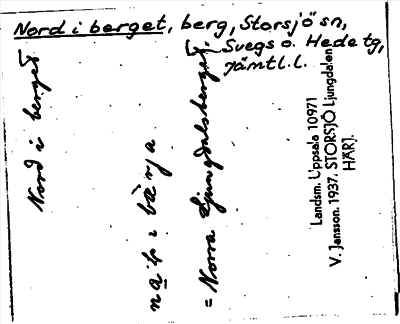 Nord i berget, berg, Storsjö sn,
Svegs o. Hede tg,
Jämtl. l.
Nord i berget
= Norra Ljungdalsberget.
Landsm. Uppsala 10971
V. Jansson. 1937. STORSJÖ Ljungdalen
HÄRJ.